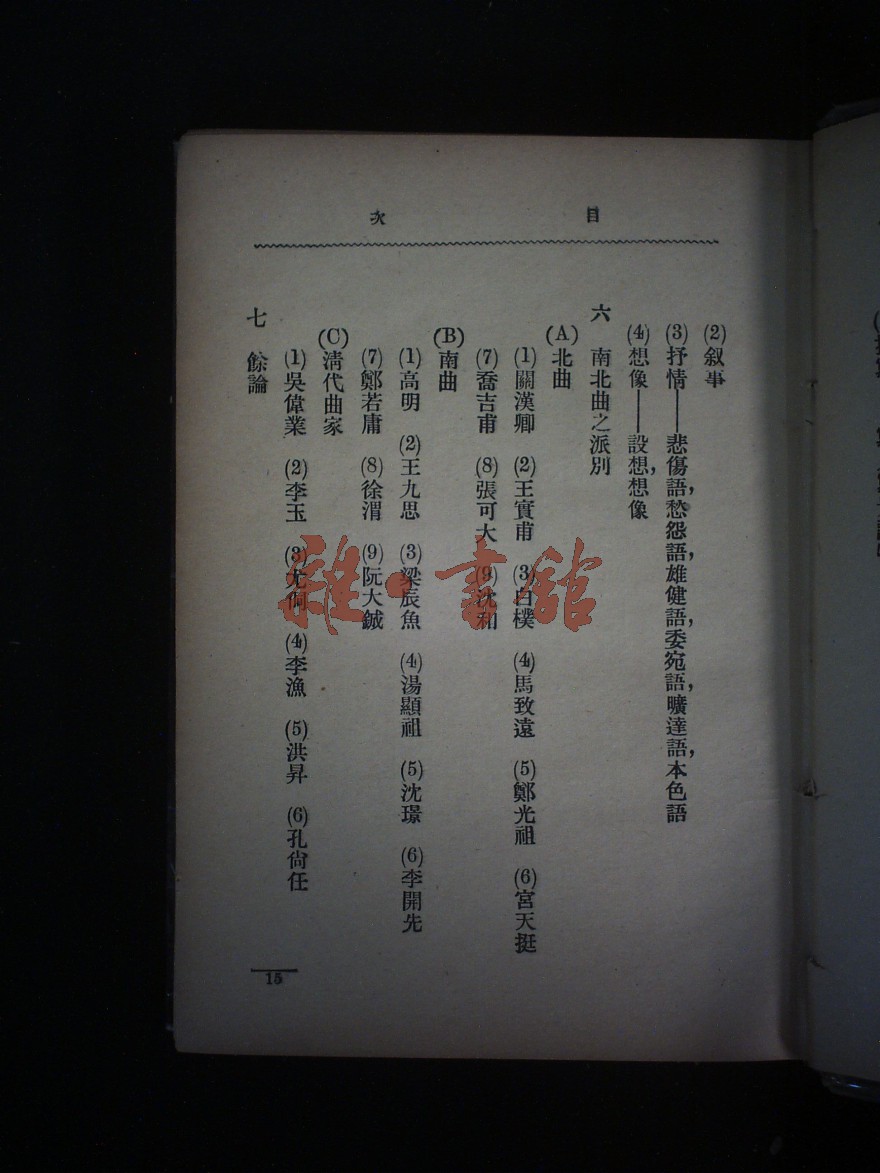 目次
(2)叙事
(3)抒情——悲傷語，愁怨語，雄健語，委宛語，曠達語，本色語
(4)想像——設想，想像
六　南北曲之派別
(A)北曲
(1)關漢卿　(2)王實甫　(3)白樸　(4)馬致遠　(5)鄭光祖　(6)宮天挺
(7)喬吉甫　(8)張可大　(9)沈和
(B)南曲
(1)高明　(2)王九思　(3)梁辰魚　(4)湯顯祖　(5)沈璟　(6)李開先
(7)鄭若庸　(8)徐渭　(9)阮大鋮
(C)清代曲家
(1)吳偉業　(2)李玉　(3)尤侗　(4)李漁　(5)洪昇　(6)孔尙任
七　餘論
15
雜·書舘